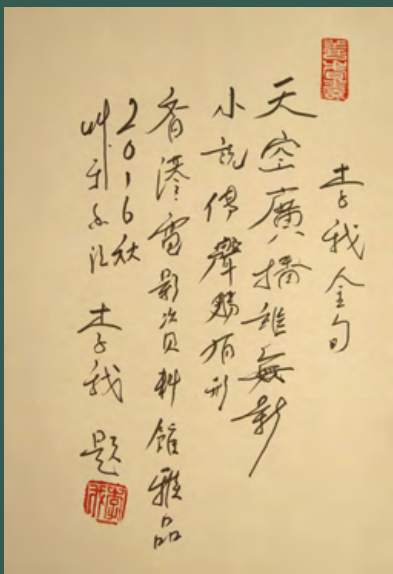 李我金句
天空廣播雖無影
小說傳聲勝有形
香港電影資料館雅品
2016秋
李我題